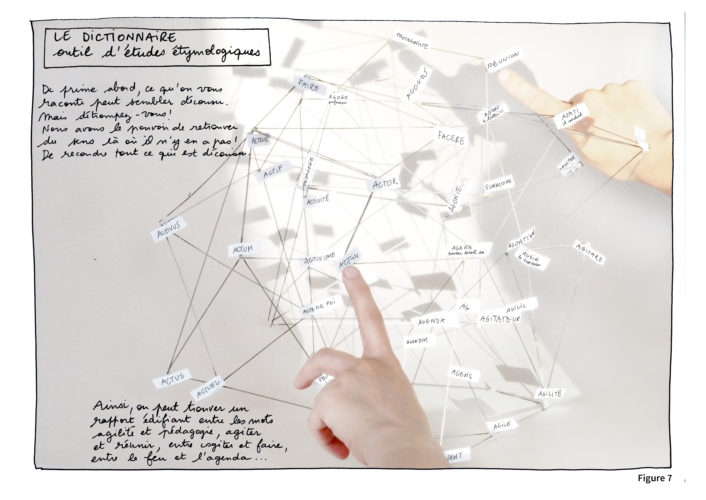 LE DICTIONNAIRE
outil d'études étymologiques
De prime abord, ce qu'on vous
raconte peut sembler décousu.
Mais détrompez-vous!
Nous avons le pouvoir de retrouver
du sens là où il n'y en a pas!
De recoudre tout ce qui est décousu.
PROTAGONISTE
RÉUNION
FAIRE
AGOGO
AGOGOS
AGON
AXATI
FACERE
ACTEUR
ACTIF
ACTOR
ACTIVITÉ
AGONIE
SYNAGOGUE
ACTIVUS
ACTUM
ACTIVISME
ACTION
AGERE
AGITATION
AGEIN
AGITARE
ACTE DE FOI
AG
AGILIS
AGENDA
AGITATEUR
AGENDUM
ACTUS
ACTUEL
AGENS
AGILITÉ
AGILE
AGENT
Ainsi, on peut trouver un
rapport édifiant entre les mots
agilité et pédagogie, agiter
et réunir, entre cogiter et faire,
entre le feu et l'agenda...
Figure 7